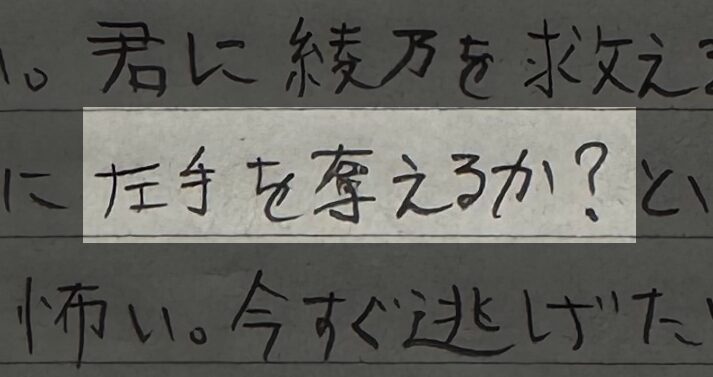 。君に綾乃を救え
に左手を奪えるか?と
怖い。今すぐ逃げた